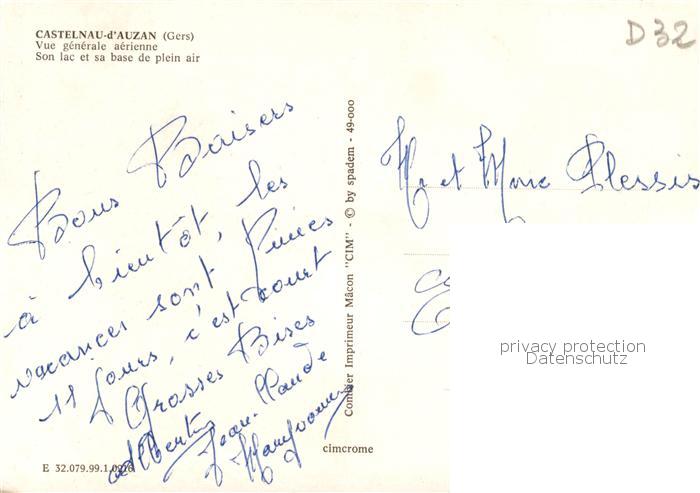 CASTELNAU-d'AUZAN (Gers)
Vue générale aérienne
Son lac et sa base de plein air
D32
Bons Baisers
à bientôt, les
vacances sont finies
11 jours, c'est court
Grosses Bises
Jean-Claude
Combier Imprimeur Mâcon "CIM" - © by spadem - 49-000
cimcrome
E 32.079.99.1.0216
Mr et Mme Plessis
privacy protection
Datenschutz